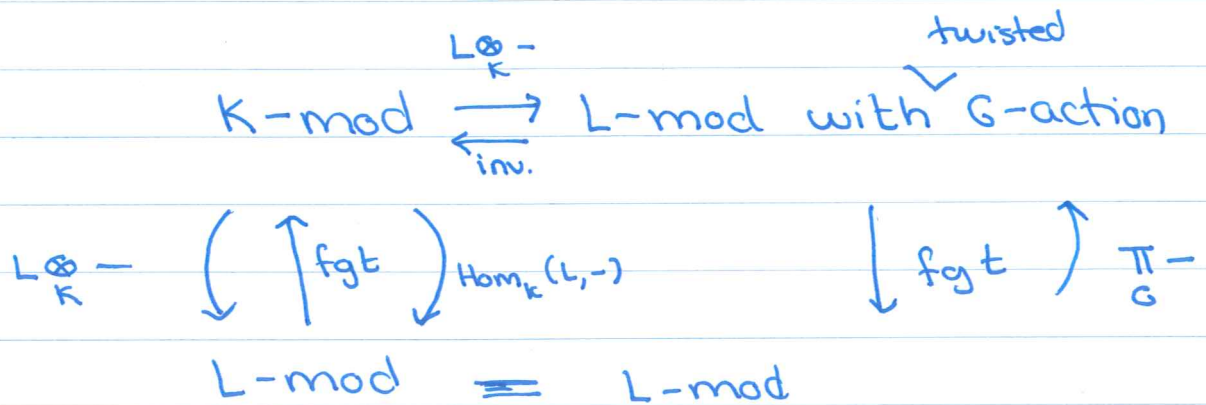 twisted
L⊗_K −
K-mod ⇄ L-mod with G-action
inv.
L⊗_K − fgt Hom_K(L,−) fgt ∏_G −
L-mod = L-mod